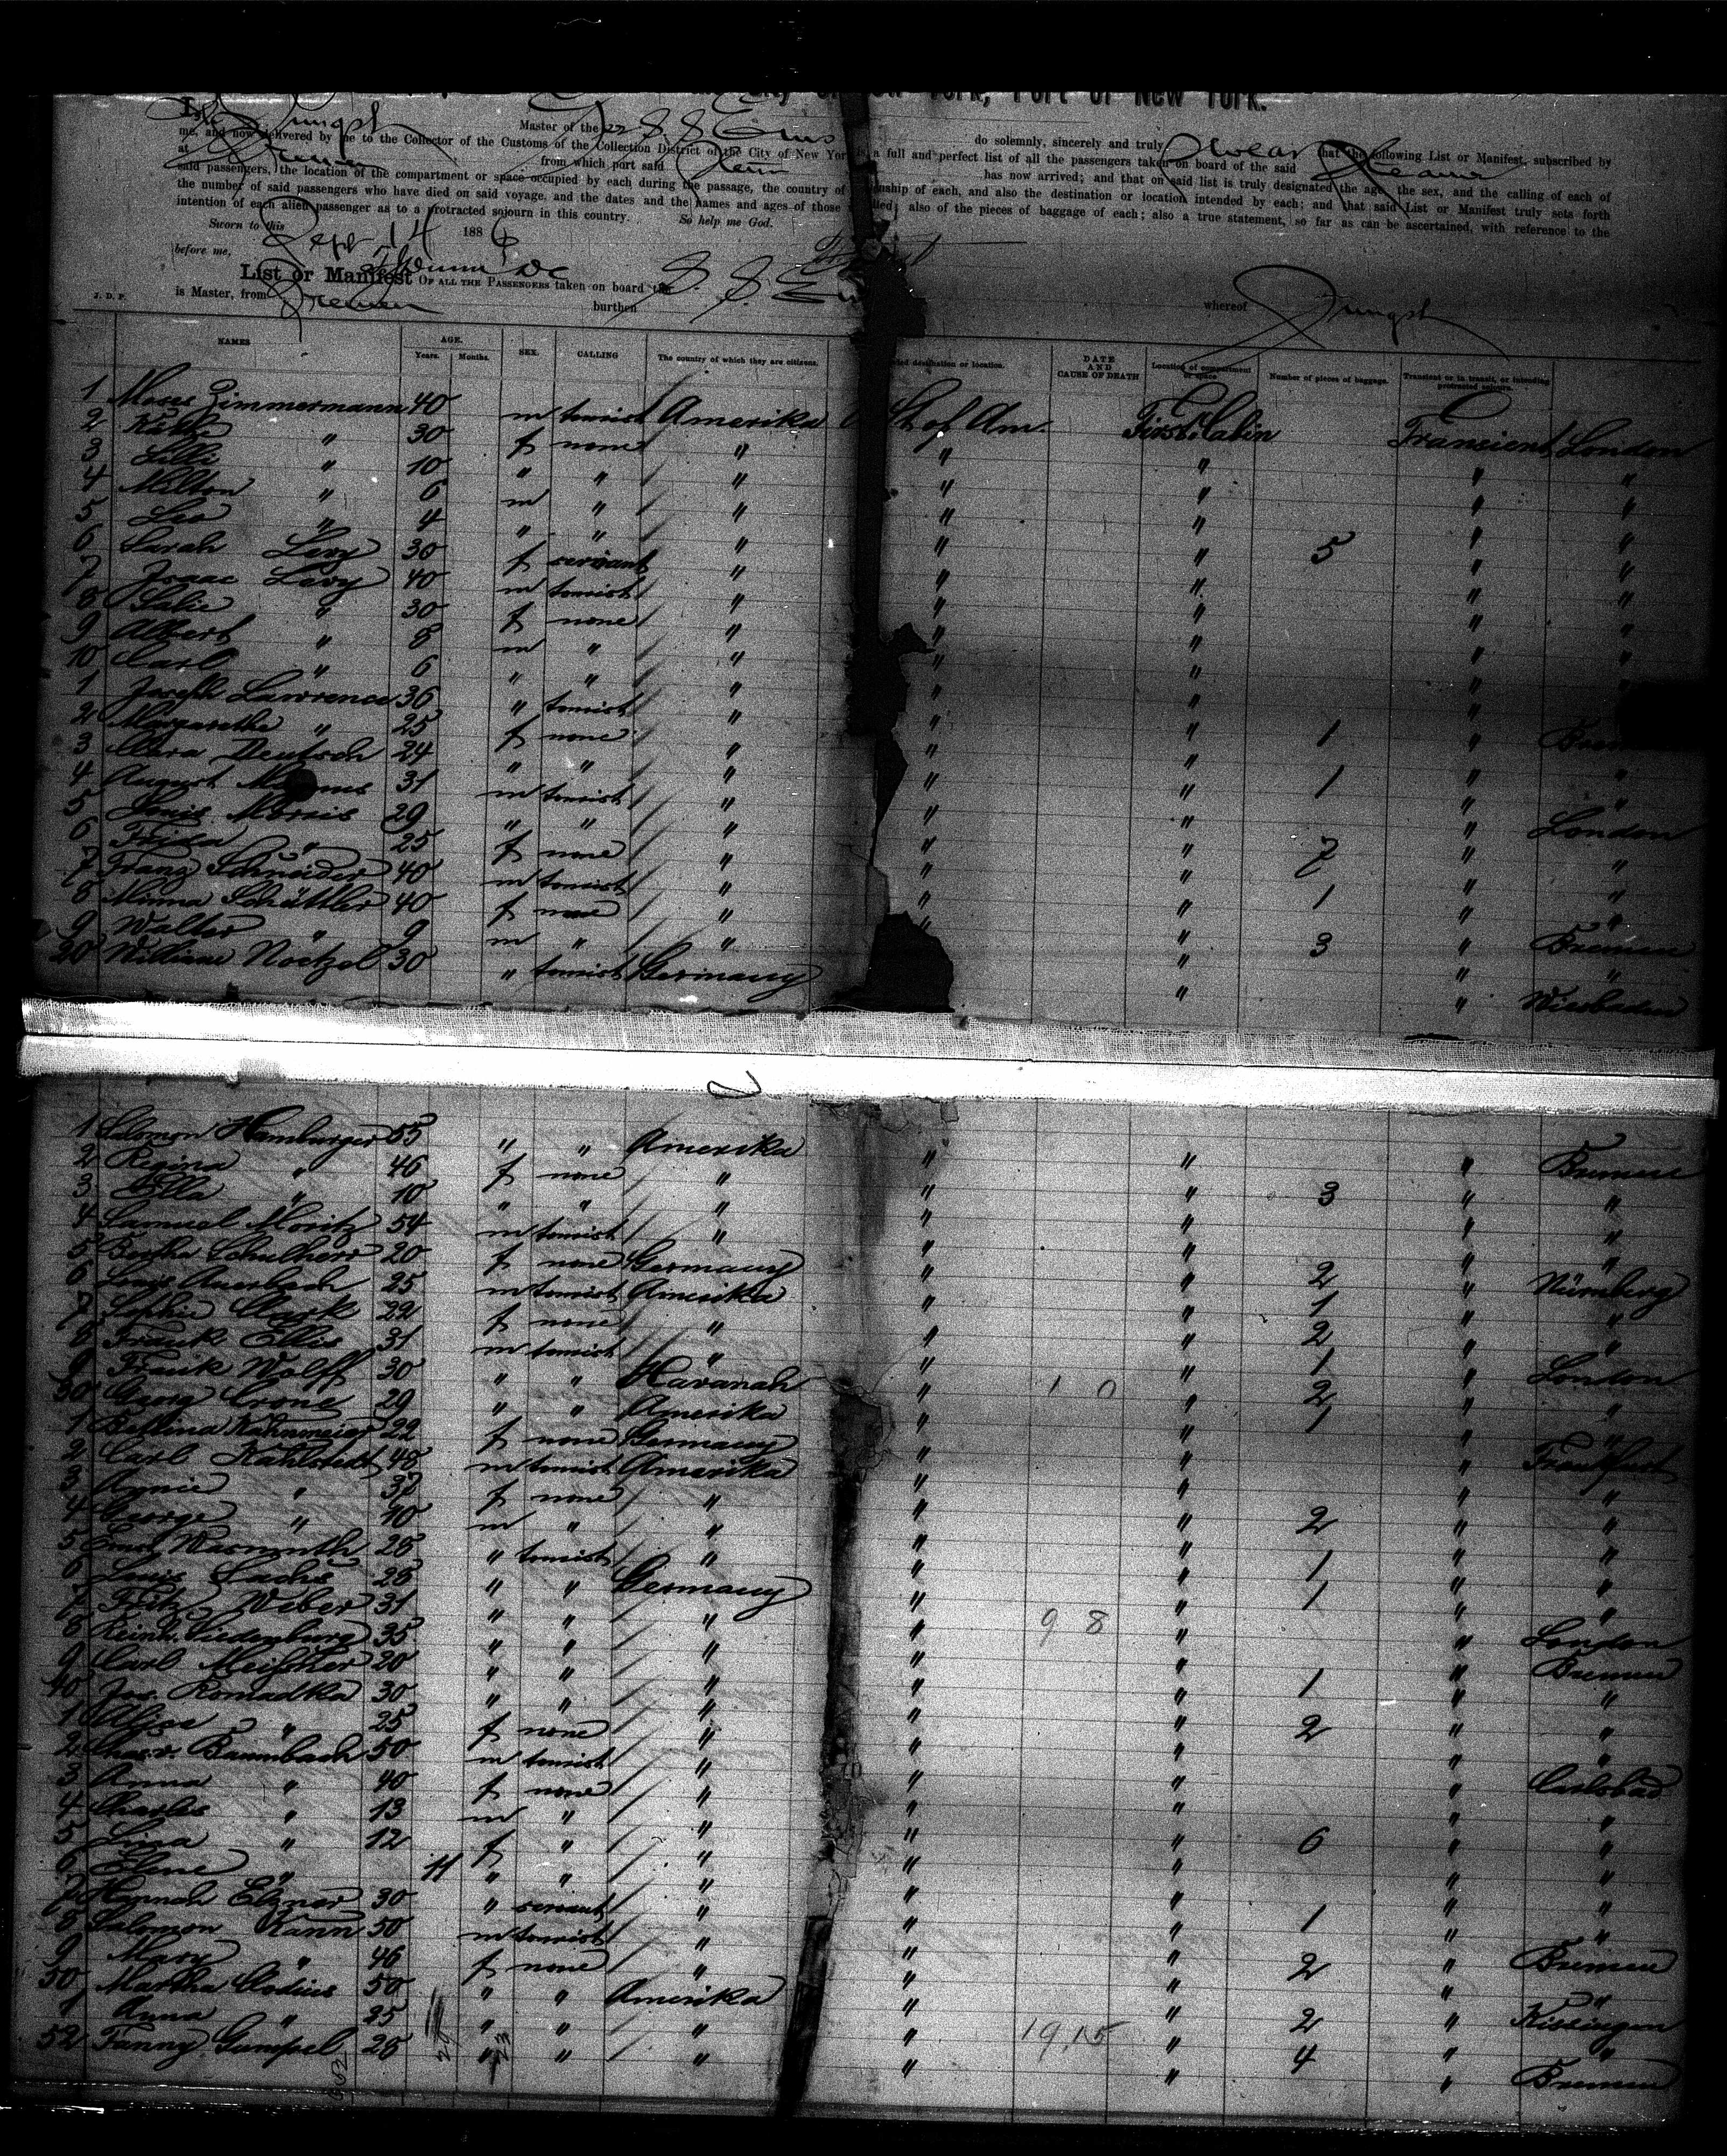 York, Port of New York.
I, Jungst Master of the SS Ems do solemnly, sincerely and truly swear that the following List or Manifest, subscribed by
me, and now delivered by me to the Collector of the Customs of the Collection District of the City of New York is a full and perfect list of all the passengers taken on board of the said Steamer
at Bremen from which port said Steamer has now arrived; and that on said list is truly designated the age, the sex, and the calling of each of
said passengers, the location of the compartment or space occupied by each during the passage, the country of citizenship of each, and also the destination or location intended by each; and that said List or Manifest truly sets forth
the number of said passengers who have died on said voyage, and the dates and the names and ages of those who died; also of the pieces of baggage of each; also a true statement, so far as can be ascertained, with reference to the
intention of each alien passenger as to a protracted sojourn in this country. So help me God.
Sworn to this Sept 14 1886
before me,
List or Manifest OF ALL THE PASSENGERS taken on board the S. S. Ems whereof Jungst
J. D. P. is Master, from Bremen burthen
NAMES AGE. Years. Months. SEX. CALLING The country of which they are citizens. destination or location. DATE AND CAUSE OF DEATH Location of compartment or space Number of pieces of baggage. Transient or in transit, or intending protracted sojourn.
1 Moses Zimmermann 40 m tourist Amerika St of Am. First Cabin Transient London
2 30 f none " " " " "
3 Lilli " 10 " " " " " " "
4 Milton " 6 m " " " " " "
5 Leo " 4 " " " " " " "
6 Sarah Levy 30 f servant " " " 5 " "
7 Isaac Levy 40 m tourist " " " " "
8 " 30 f none " " " " "
9 Albert " 8 m " " " " " "
10 Carl " 6 " " " " " " "
1 Joseph Lawrence 36 " tourist " " " "
2 Margarethe " 25 f none " " " 1 "
3 Clara Deutsch 24 " " " " " " "
4 August 31 m tourist " " " 1 " "
5 Louis Morris 29 " " " " " " London
6 Frida " 25 f none " " " 7 " "
7 Franz Schneider 40 m tourist " " " 1 " "
8 Minna Schüttler 40 f none " " " " "
9 Walter " 9 m " " " " 3 " Bremen
20 William Noetzel 30 " tourist Germany " " " Wiesbaden
1 Salomon Hamburger 55 " " Amerika " " " Bremen
2 Regina " 46 f none " " " 3 " "
3 Ella " 10 " " " " " " "
4 Samuel Moritz 54 m tourist " " " " "
5 Bertha Schulherr 20 f none Germany " " 2 " Nürnberg
6 Louis Auerbach 25 m tourist Amerika " " 1 " "
7 Sophie Clark 22 f none " " " 2 " "
8 Frank Ellis 31 m tourist " " " 1 " London
9 Frank Wolff 30 " " Havanah " " 2 " "
30 Georg Crone 29 " " Amerika " " 1 " "
1 Bettina 22 f none Germany " " " Frankfurt
2 Carl Kahlstedt 48 m tourist Amerika " " " "
3 Annie " 32 f none " " " 2 " "
4 George " 10 m " " " " " "
5 Ernst Wasmuth 28 " tourist " " " 1 " "
6 Louis Sachs 28 " " Germany " " 1 " "
7 Fritz Weber 31 " " " " " " London
8 Reinh. Siedenburg 35 " " " " " " Bremen
9 Carl Meißner 20 " " " " " 1 " "
40 Jos. Romadka 30 " " " " " 2 " "
1 " 25 f none " " " " "
2 Chas. v. Baumbach 50 m tourist " " " " Carlsbad
3 Anna " 40 f none " " " " "
4 Charles " 13 m " " " " 6 " "
5 Lina " 12 f " " " " " "
6 Elene " 11 " " " " " " "
7 Hannah 30 " servant " " " 1 " "
8 Salomon Kann 50 m tourist " " " 2 " Bremen
9 Mary " 46 f none " " " " "
50 Martha 50 " " Amerika " " 2 " Kissingen
1 Anna " 25 " " " " " 4 " "
52 Fanny Gumpel 28 " " " " " " Bremen